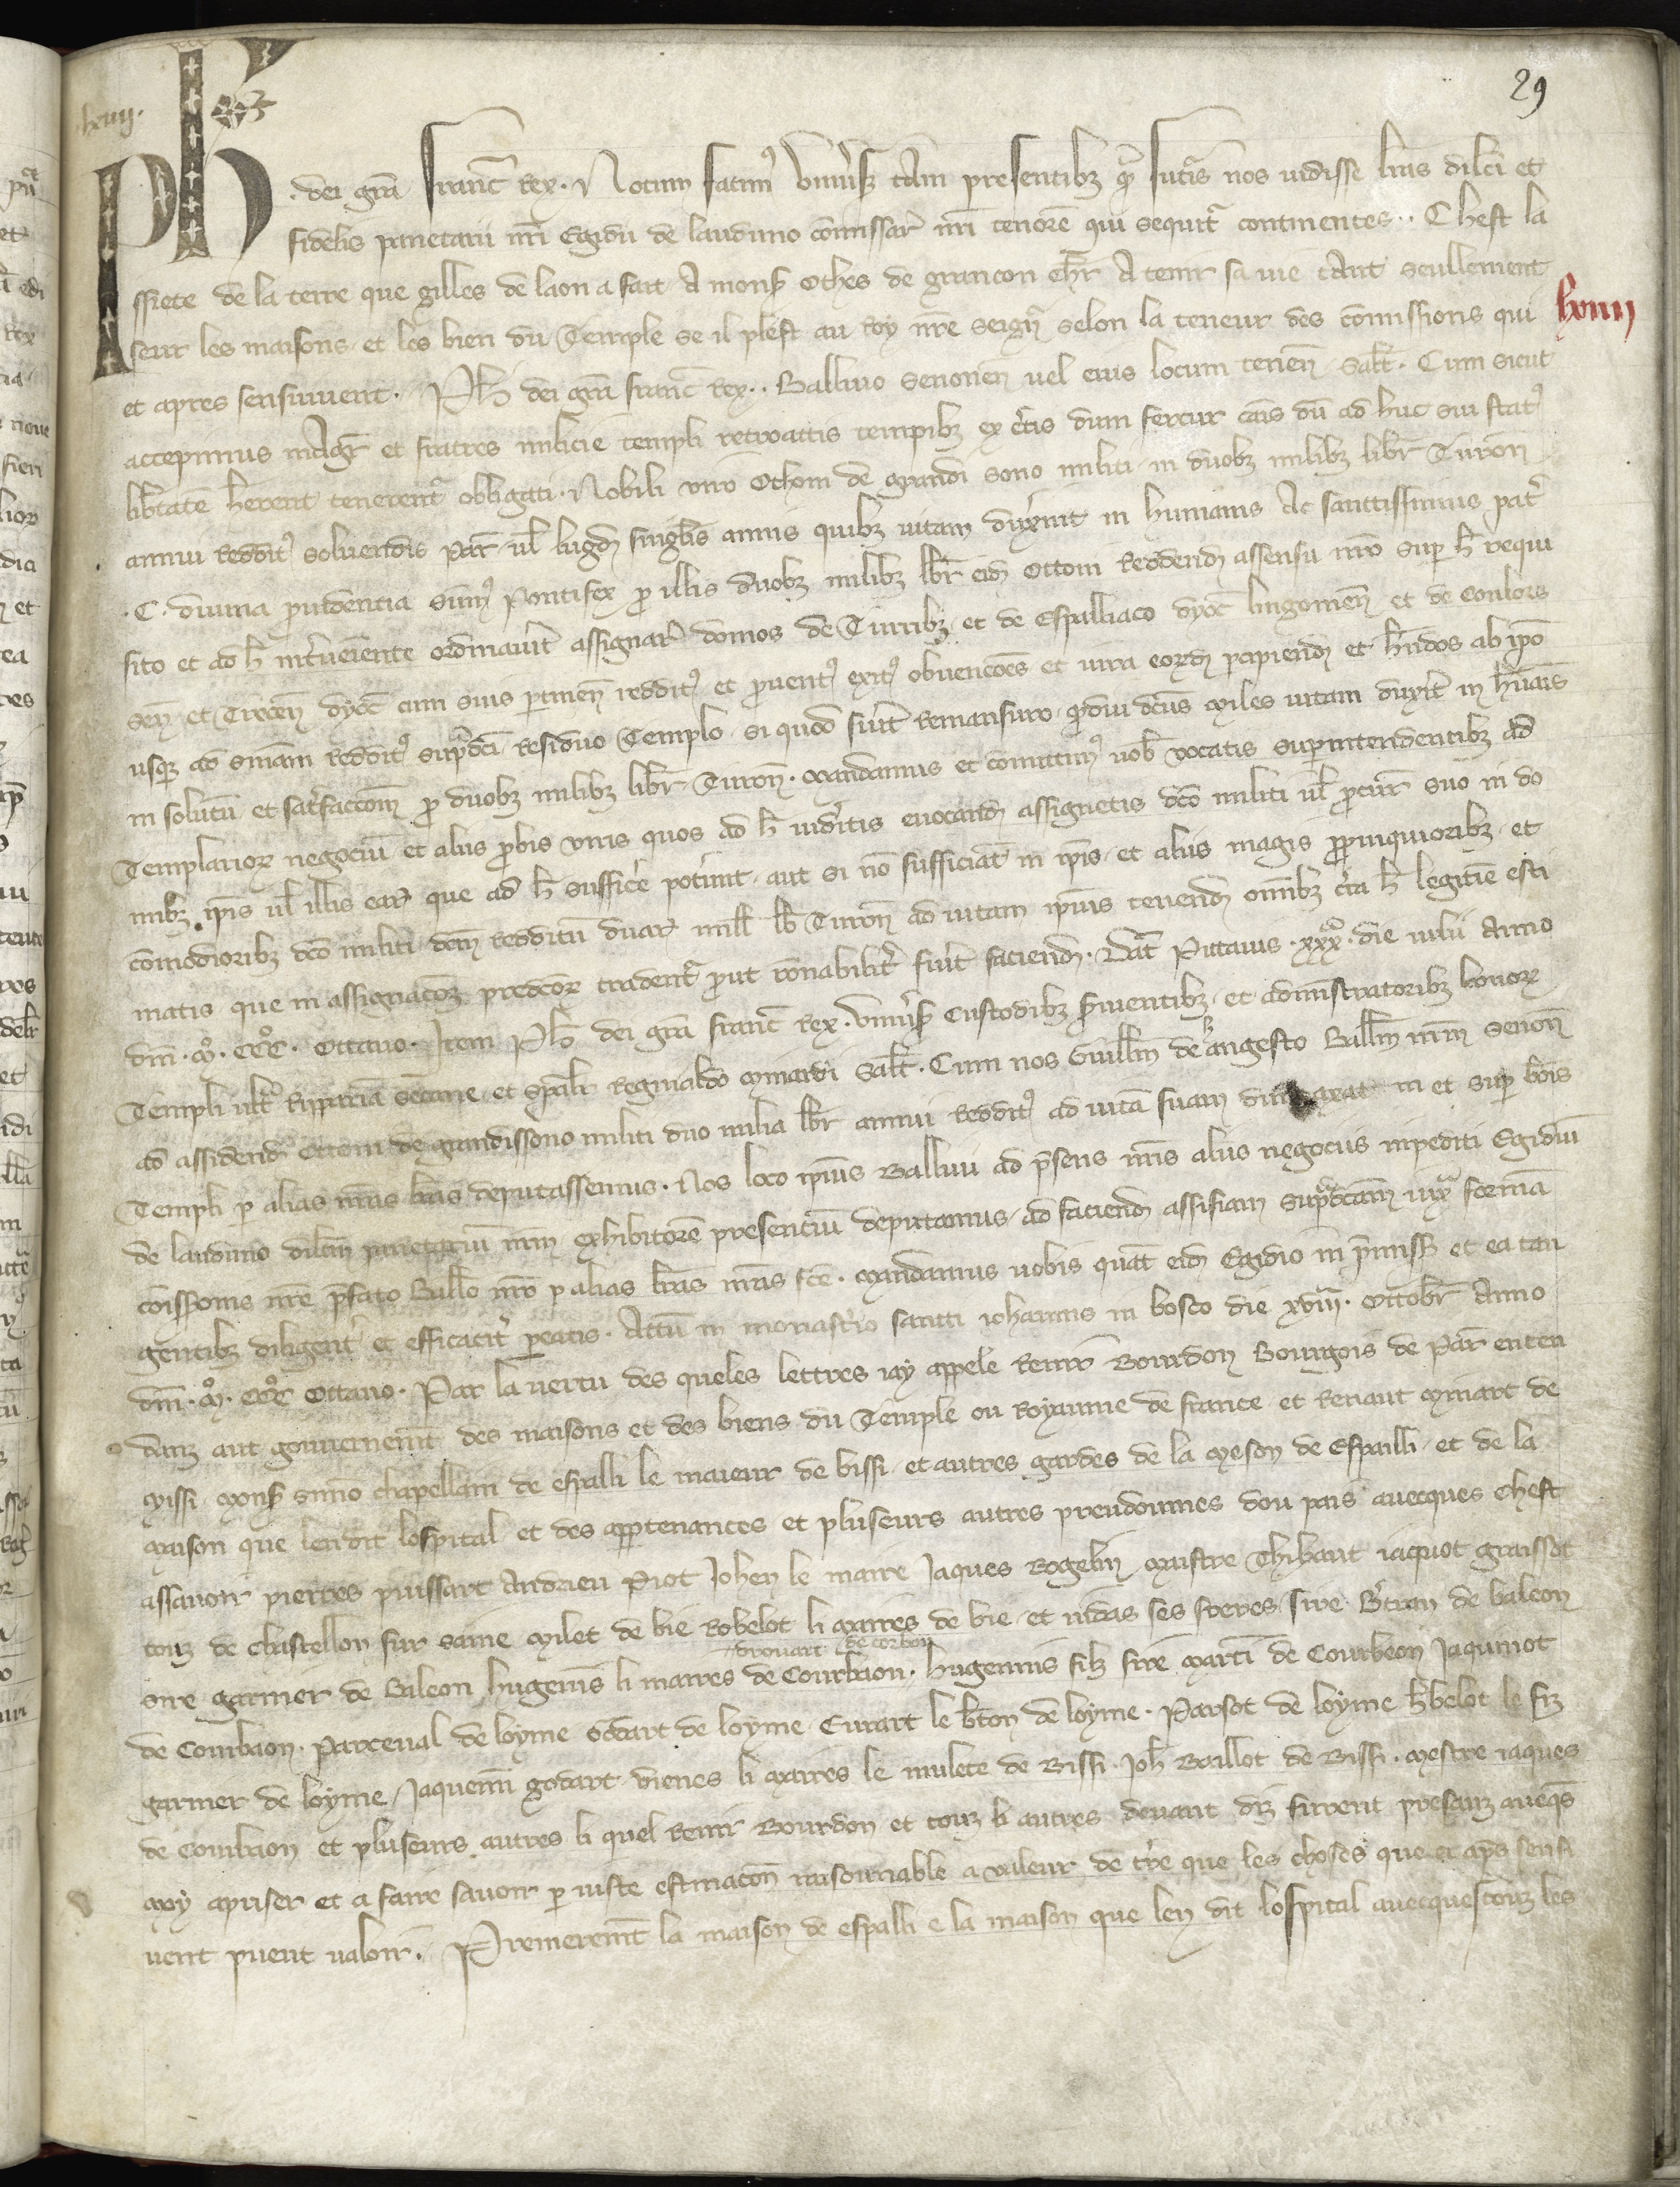 29
lxviij.
Ph
. dei gra Franc Rex. Notum facimus universis tam presentibz qr futuris nos vidisse lras dilci et
fidelis panetarii nri Egidii de lauduno comissar nri tenore qui sequitr continentes.. Chest la
ssiete de la terre que gilles de laon a fait a mons Othes de grancon chlr a tenir sa vie tant seullement
lxviij
seur les maisons et les bien du Temple se il plest au Roy nre seignr selon la teneur des comissions qui
et apres sensuivent. Ph dei gra franc Rex.. Ballivo Senonen vel eius locum tenen salt. Cum sicut
accepimus magr et fratres milicie templi retroactis tempibz ex certis dum fertur cais du ad huc sui status
libertate herent tenerentr obligati. Nobili viro Othoni de grandi sono militi in duobz milibz libr Turon
annui redditus solvendis par vel lugdun singlis annis quibz vitam duxerit in humanis Ac sanctissimus patr
.C. divina providentia summus Pontifex pro illis duobz milibz libr eid Ottoni reddend assensu nro super h requi
sito et ad h interveniente ordinaverit assignari domos de Turribz et de Espalliaco dyoc lingonen et de Coulors
sen et Trecen dyoc cum suis pertinen redditus et proventus exitus obvenciones et iura eorund percipiend et hndos ab ipo
usqz ad smam redditus supradci residuo Templo si quod fuerit remansuro qrdiu dcus miles vitam duxerit in humanis
in solutum et satisfaccom pro duobz milibz libr Turon. Mandamus et comittimus vob vocatis superintendentibz ad
Templarior negocium et aliis probis viris quos ad h videritis evocand assignetis dco militi vel procur suo in do
mibz ipis vel illis ear que ad h sufficere poterunt aut si no sufficiant in ipis et aliis magis propinquioribz et
comodioribz dco militi dcm redditum duar mill lb Turon ad vitam ipius tenend omibz circa h legitime esti
matis que in assignacoe predcor tradentr prout ronabiliter fuerit faciend. Dat Pictavis .xxxo. die Julii Anno
dni. Mo. CCCo. Octavo. Item Ph dei gra franc Rex. universis custodibz servientibz et administratoribz bonor
Templi ultra Rippariam Secane et spalr Reginaldo Minardi salt. Cum nos Guillm de hangesto Ballm nrm Senon
ad assidend Ottoni de grandissono militi duo milia libr annui redditus ad vita suam dum taxat in et super bonis
Templi per alias nras lras deputassemus. Nos loco ipius Ballivi ad presens nris aliis negociis impediti Egidium
de lauduno dilcm panetarium nrm exhibitorem presencium deputamus ad faciend assisiam supradcam iuxta formam
comissionis nre prefato Ballo nro per alias lras nras fce. Mandamus vobis quat eid Egidio in premissis et ea tan
gentibz diligenter et efficaciter pareatis. Actum in monasterio sancti iohannis in bosco die xviija. Octobr Anno
dni. Mo. CCCo Octavo. Par la vertu des queles lettres iay appele Renir Bourdon Bourgois de Par enten
danz aut gouvernemt des maisons et des biens du Temple ou Royaume de france et Renaut Minart de
Missi mons Simo chapellain de espalli le maieur de bissi et autres gardes de la meson de Espailli et de la
maison que len dit lospital et des appertenances et pluseurs autres preudommes dou pais avecques Chest
assavoir pierres puissart Andrieu Piot Johen le maire Jaques Rogelin maistre Thibaut iaquot graissot
touz de chastellon sur saine Milet de bie Robelot li maires de bie et vidas ses freres sire Btran de baleon
drouart de corbon
oire garnier de Baleon hugenins li maires de Courbaon. hugenins filz sire marti de Courbeon Jaquinot
de Courbaon. parceval de loyme odart de loyme Evrart le bton de loyme. Parsot de loyme hbelot le fiz
garnier de loyme Jaquemi godart vienes li maires le mulete de Bissi. Joh Baillot de Bissi. mestre iaques
de Courbaon et pluseurs autres li quel Renir Bourdon et touz li autres devant diz furent presanz aveqs
moy apriser et a faire savoir par iuste estimacon raisonnable a valeur de tre que les choses que ci aps sensi
vent puent valoir. Premeremt la maison de espalli e la maison que len dit lospital avecques touz les